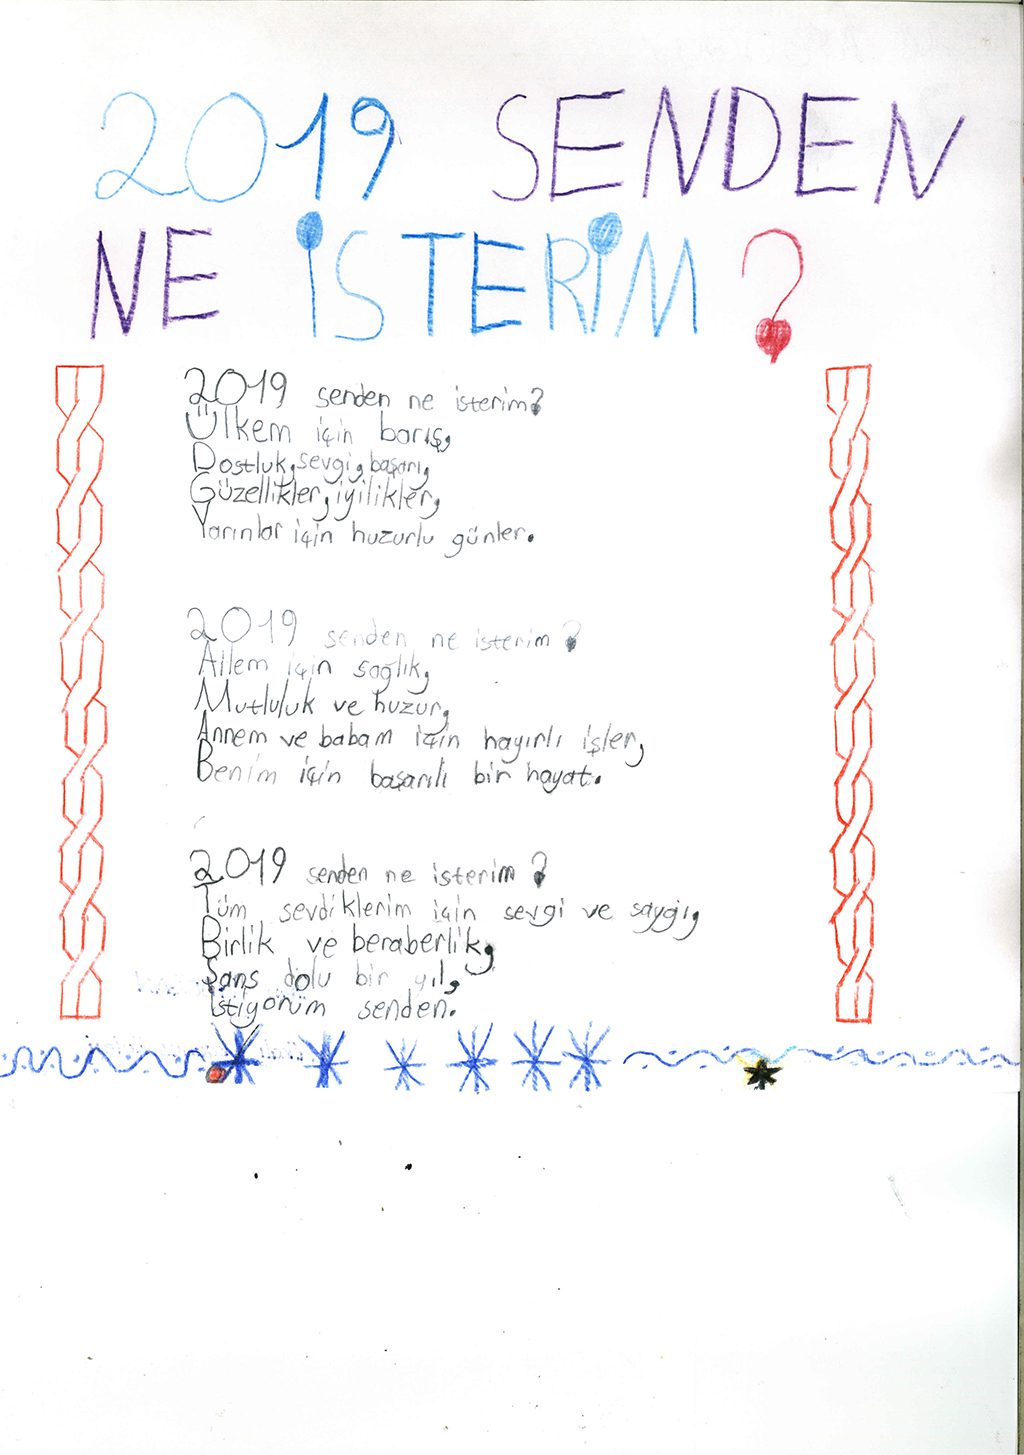 2019 SENDEN
NE İSTERİM?
2019 senden ne isterim?
Ülkem için barış,
Dostluk, sevgi, başarı,
Güzellikler, iyilikler,
Yarınlar için huzurlu günler.
2019 senden ne isterim?
Ailem için sağlık,
Mutluluk ve huzur,
Annem ve babam için hayırlı işler,
Benim için başarılı bir hayat.
2019 senden ne isterim?
Tüm sevdiklerim için sevgi ve saygı,
Birlik ve beraberlik,
Şans dolu bir yıl,
İstiyorum senden.